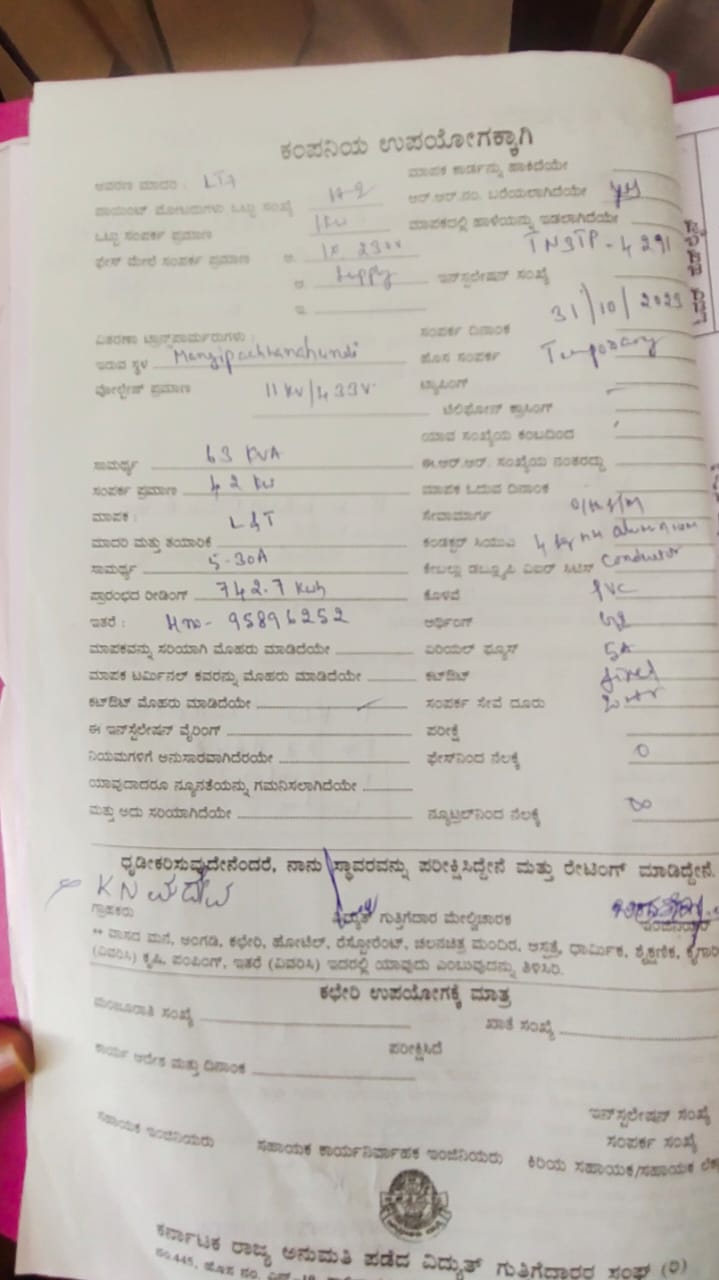 ಕಂಪನಿಯ ಉಪಯೋಗಕ್ಕಾಗಿ
ಮಾಪಕ ಕಾರ್ಡನ್ನು ಹಾಕಿದೆಯೇ
ಆವರಣ ಮಾದರಿ : LT7
ಆರ್.ಆರ್.ನಂ. ಬರೆಯಲಾಗಿದೆಯೇ yes
ಪಾಯಿಂಟ್ ಮೋಟಾರುಗಳು ಒಟ್ಟು ಸಂಖ್ಯೆ
ಮಾಪಕದಲ್ಲಿ ಹಾಳೆಯನ್ನು ಇಡಲಾಗಿದೆಯೇ
ಒಟ್ಟು ಸಂಪರ್ಕ ಪ್ರಮಾಣ 1KW
ಫೇಸ್ ಮೇಲೆ ಸಂಪರ್ಕ ಪ್ರಮಾಣ ಅ.
TNSTP-4291
ಆ. supply ಇನ್‌ಸ್ಟಲೇಷನ್ ಸಂಖ್ಯೆ
ಇ.
31/10/2023
ವಿತರಣಾ ಟ್ರಾನ್ಸ್‌ಫಾರ್ಮರುಗಳು : ಸಂಪರ್ಕ ದಿನಾಂಕ
ಇರುವ ಸ್ಥಳ ಹೊಸ ಸಂಪರ್ಕ Temporary
ವೋಲ್ಟೇಜ್ ಪ್ರಮಾಣ 11KV/433V ಟ್ಯಾಪಿಂಗ್
ಟೆಲಿಫೋನ್ ಕ್ರಾಸಿಂಗ್
ಯಾವ ಸಂಖ್ಯೆಯ ಕಂಬದಿಂದ
ಸಾಮರ್ಥ್ಯ 63 KVA ಈ.ಆರ್.ಆರ್. ಸಂಖ್ಯೆಯ ನಂತರದ್ದು
ಸಂಪರ್ಕ ಪ್ರಮಾಣ 42 KW ಮಾಪಕ ಓದುವ ದಿನಾಂಕ
ಮಾಪಕ : L&T ಸೇವಾಮಾರ್ಗ
ಮಾದರಿ ಮತ್ತು ತಯಾರಿಕೆ ಕಂಡಕ್ಟರ್ ಸಿಯುವಿ 4 sq mm aluminium
ಸಾಮರ್ಥ್ಯ 5-30A ಕೇಬಲ್ಲು ಡಬ್ಲ್ಯೂಪಿ ಎಐಆರ್ ಸಿಟಿಸ್ conductor
ಪ್ರಾರಂಭದ ರೀಡಿಂಗ್ 742.7 Kwh ಕೊಳವೆ PVC
ಇತರೆ : Mno- 95896252 ಅರ್ಥಿಂಗ್
ಮಾಪಕವನ್ನು ಸರಿಯಾಗಿ ಮೊಹರು ಮಾಡಿದೆಯೇ ಏರಿಯಲ್ ಫ್ಯೂಸ್ 5A
ಮಾಪಕ ಟರ್ಮಿನಲ್ ಕವರನ್ನು ಮೊಹರು ಮಾಡಿದೆಯೇ ಕಟ್‌ಔಟ್ fixed
ಕಟ್‌ಔಟ್ ಮೊಹರು ಮಾಡಿದೆಯೇ ಸಂಪರ್ಕ ಸೇವೆ ದೂರು
ಈ ಇನ್‌ಸ್ಟಲೇಷನ್ ವೈರಿಂಗ್ ಪರೀಕ್ಷೆ
ನಿಯಮಗಳಿಗೆ ಅನುಸಾರವಾಗಿದೆರಯೇ ಫೇಸ್‌ನಿಂದ ನೆಲಕ್ಕೆ 0
ಯಾವುದಾದರೂ ನ್ಯೂನತೆಯನ್ನು ಗಮನಿಸಲಾಗಿದೆಯೇ
ಮತ್ತು ಅದು ಸರಿಯಾಗಿದೆಯೇ ನ್ಯೂಟ್ರಲ್‌ನಿಂದ ನೆಲಕ್ಕೆ
ಧೃಡೀಕರಿಸುವುದೇನೆಂದರೆ, ನಾನು ಸ್ಥಾವರವನ್ನು ಪರೀಕ್ಷಿಸಿದ್ದೇನೆ ಮತ್ತು ರೇಟಿಂಗ್ ಮಾಡಿದ್ದೇನೆ.
ಗ್ರಾಹಕರು ವಿದ್ಯುತ್ ಗುತ್ತಿಗೆದಾರ ಮೇಲ್ವಿಚಾರಕ ಇಂಜಿನಿಯರ್
** ವಾಸದ ಮನೆ, ಅಂಗಡಿ, ಕಛೇರಿ, ಹೋಟೆಲ್, ರೆಸ್ಟೋರೆಂಟ್, ಚಲನಚಿತ್ರ ಮಂದಿರ, ಆಸ್ಪತ್ರೆ, ಧಾರ್ಮಿಕ, ಶೈಕ್ಷಣಿಕ,
(ವಿವರಿಸಿ) ಕೃಷಿ, ಪಂಪಿಂಗ್, ಇತರೆ (ವಿವರಿಸಿ) ಇದರಲ್ಲಿ ಯಾವುದು ಎಂಬುವುದನ್ನು ತಿಳಿಸಿರಿ.
ಕಛೇರಿ ಉಪಯೋಗಕ್ಕೆ ಮಾತ್ರ
ಮಂಜೂರಾತಿ ಸಂಖ್ಯೆ ಖಾತೆ ಸಂಖ್ಯೆ
ಪರೀಕ್ಷಿಸಿದೆ
ಕಾರ್ಯ ಆದೇಶ ಮತ್ತು ದಿನಾಂಕ
ಇನ್‌ಸ್ಟಲೇಷನ್ ಸಂಖ್ಯೆ
ಸಂಪರ್ಕ ಸಂಖ್ಯೆ
ಸಹಾಯಕ ಇಂಜಿನಿಯರು ಸಹಾಯಕ ಕಾರ್ಯನಿರ್ವಾಹಕ ಇಂಜಿನಿಯರು ಕಿರಿಯ ಸಹಾಯಕ/ಸಹಾಯಕ
ಕರ್ನಾಟಕ ರಾಜ್ಯ ಅನುಮತಿ ಪಡೆದ ವಿದ್ಯುತ್ ಗುತ್ತಿಗೆದಾರರ ಸಂಘ (ರಿ)
ನಂ.445, ಹೊಸ ನಂ.